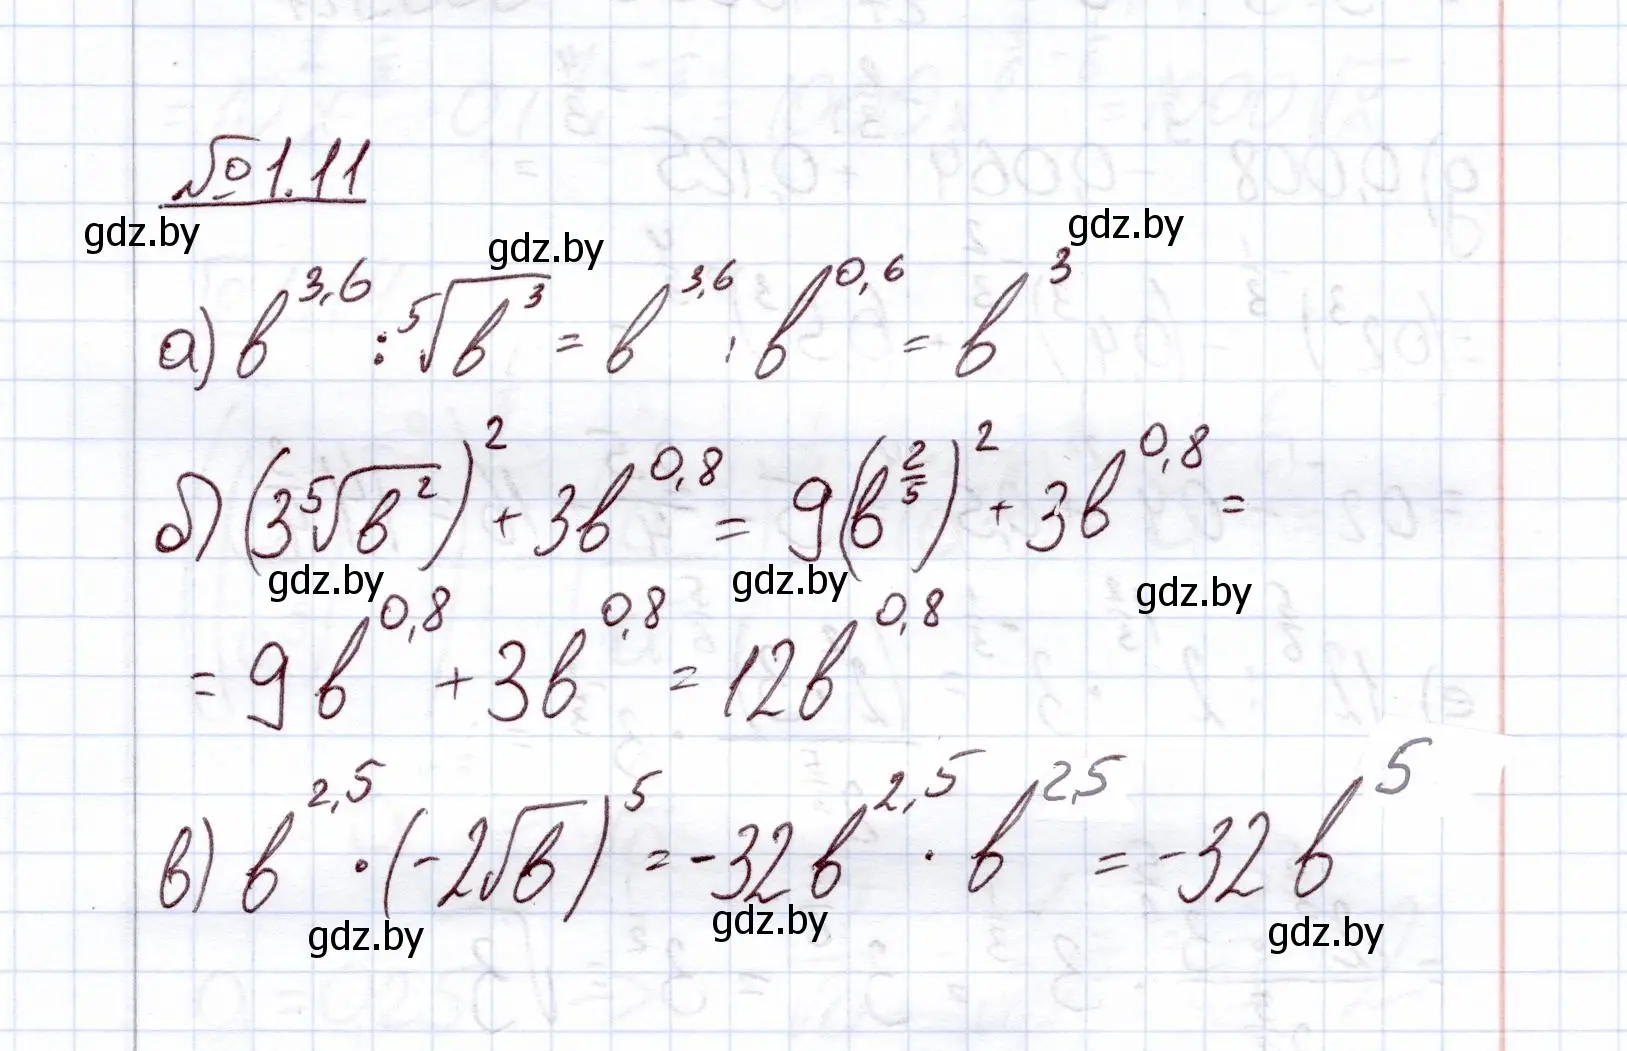 №1.11
gdz.by gdz.by gdz.by
а) b^{3,6} : \sqrt[5]{b^3} = b^{3,6} : b^{0,6} = b^3
б) (3\sqrt[5]{b^2})^2 + 3b^{0,8} = 9(b^{\frac{2}{5}})^2 + 3b^{0,8} =
gdz.by gdz.by gdz.by
= 9b^{0,8} + 3b^{0,8} = 12b^{0,8}
в) b^{2,5} · (-2\sqrt{b})^5 = -32b^{2,5} · b^{2,5} = -32b^5
gdz.by gdz.by gdz.by